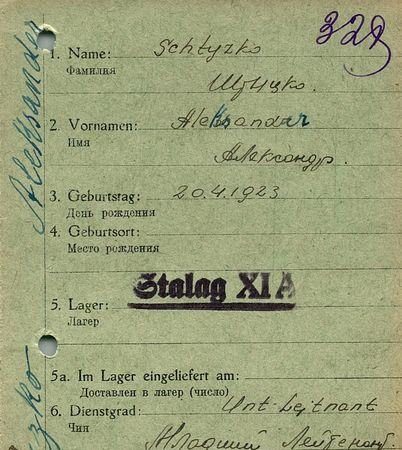 328
1. Name: Schtyzko
Фамилия Штыцко.
2. Vornamen: Aleksandr
Имя Александр.
3. Geburtstag: 20.4.1923
День рождения
4. Geburtsort:
Место рождения
Stalag XI A
5. Lager:
Лагерь
5a. Im Lager eingeliefert am:
Доставлен в лагерь (число)
6. Dienstgrad: Unt. Lejtnant
Чин Младший Лейтенант.
Aleksander